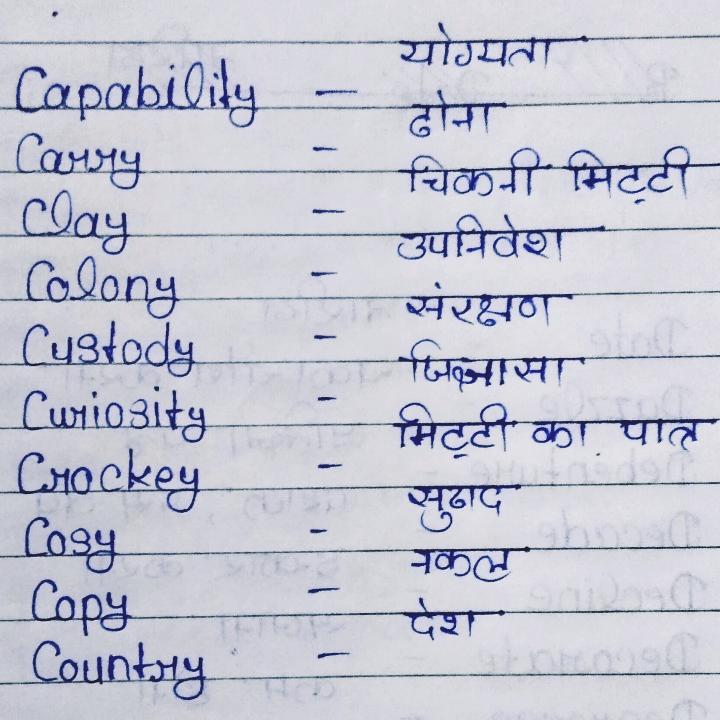 Capability - योग्यता
Carry - ढोना
Clay - चिकनी मिट्टी
Colony - उपनिवेश
Custody - संरक्षण
Curiosity - जिज्ञासा
Crockey - मिट्टी का पात्र
Cosy - सुढाद
Copy - नकल
Country - देश